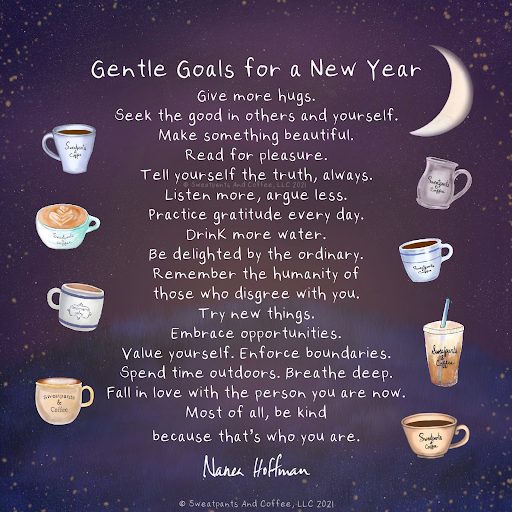 Gentle Goals for a New Year
Give more hugs.
Seek the good in others and yourself.
Make something beautiful.
Read for pleasure.
Tell yourself the truth, always.
© Sweatpants And Coffee, LLC 2021
Listen more, argue less.
Practice gratitude every day.
Drink more water.
Be delighted by the ordinary.
Remember the humanity of
those who disgree with you.
Try new things.
Embrace opportunities.
Value yourself. Enforce boundaries.
Spend time outdoors. Breathe deep.
Fall in love with the person you are now.
Most of all, be kind
because that's who you are.
Nanea Hoffman
© Sweatpants And Coffee, LLC 2021
Sweatpants
& Coffee
Sweatpants
& Coffee
Sweatpants
&
Coffee
Sweatpants
& Coffee
Sweatpants
& Coffee
Sweatpants
&
Coffee
Sweatpants
& Coffee